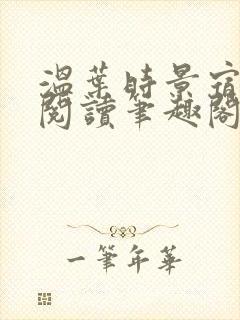 溫葉時景宿
閱讀筆趣閣
一筆年華